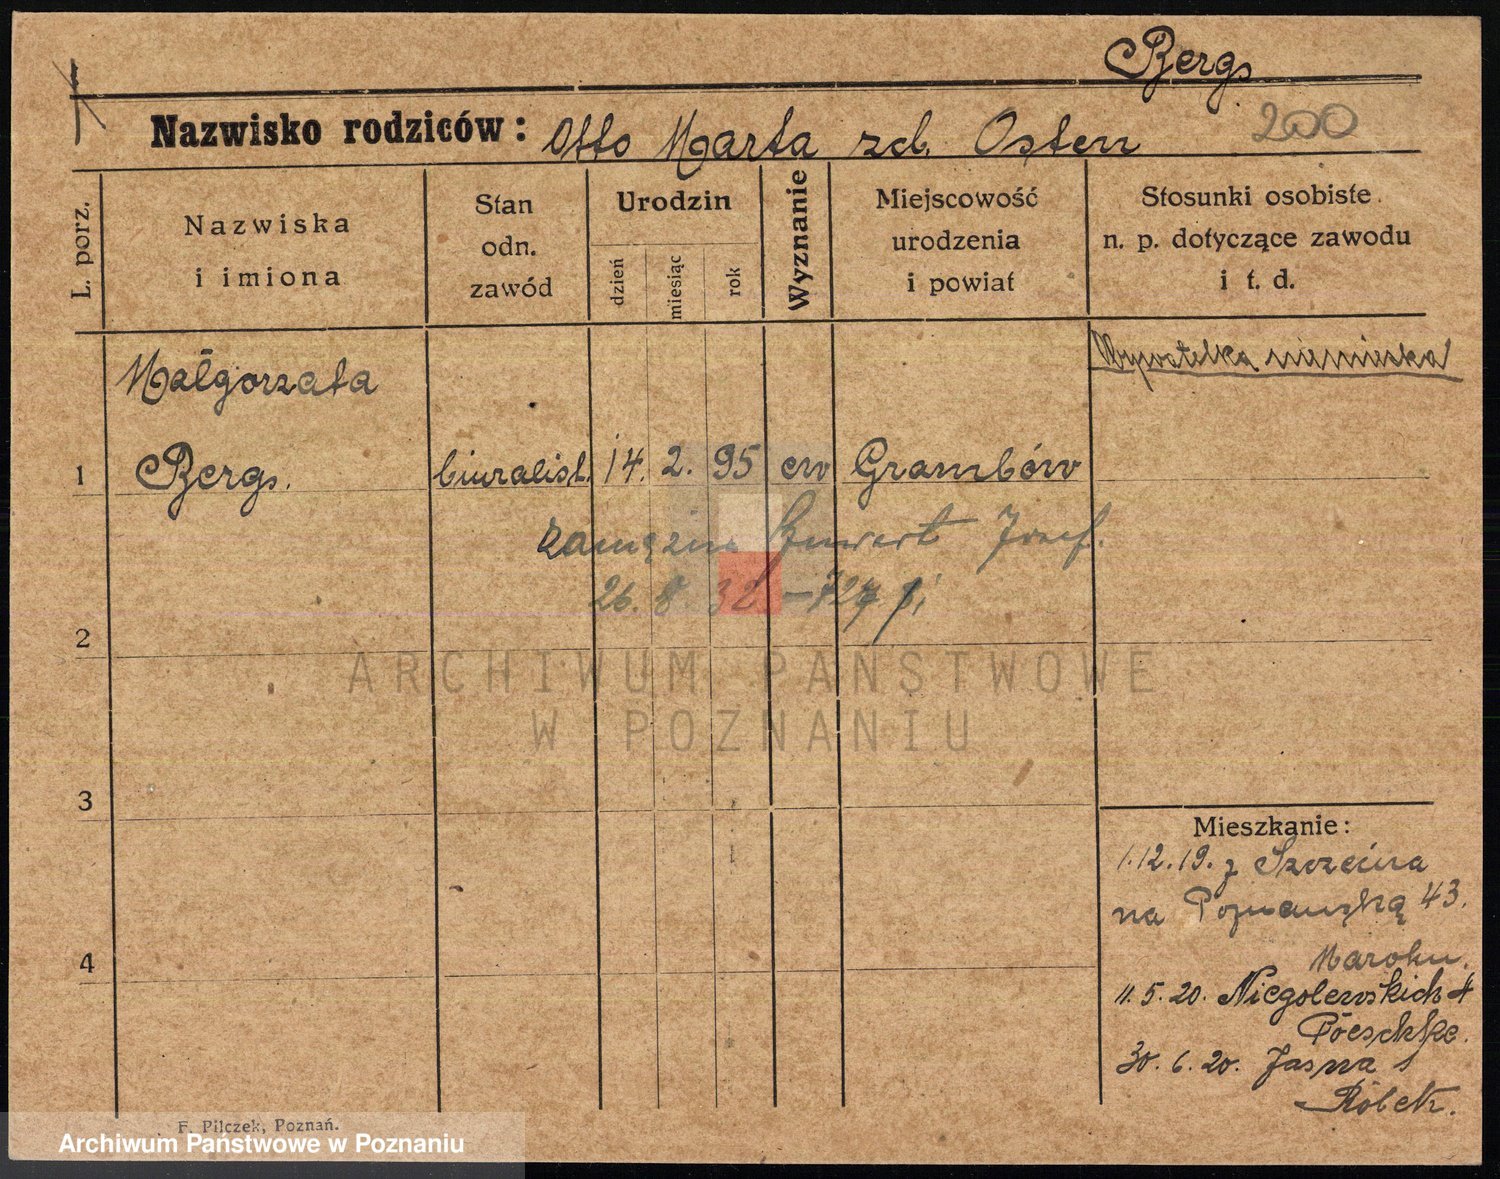 Berg.
200
Nazwisko rodziców: Otto Marta zd. Osten
L. porz.
Nazwiska
i imiona
Stan
odn.
zawód
Urodzin
dzień
miesiąc
rok
Wyznanie
Miejscowość
urodzenia
i powiat
Stosunki osobiste
n. p. dotyczące zawodu
i t. d.
Obywatelka niemiecka
Małgorzata
1 Berg. biuralist. 14. 2. 95 ew Grambów
zamężna Józef.
26. 8. 32
2
ARCHIWUM PAŃSTWOWE
W POZNANIU
3
4
Mieszkanie:
1.12.19. z Szczecina
na Poznańską 43.
11.5.20. Niegolewskich
30.6.20. Jasna
F. Pilczek, Poznań.
Archiwum Państwowe w Poznaniu